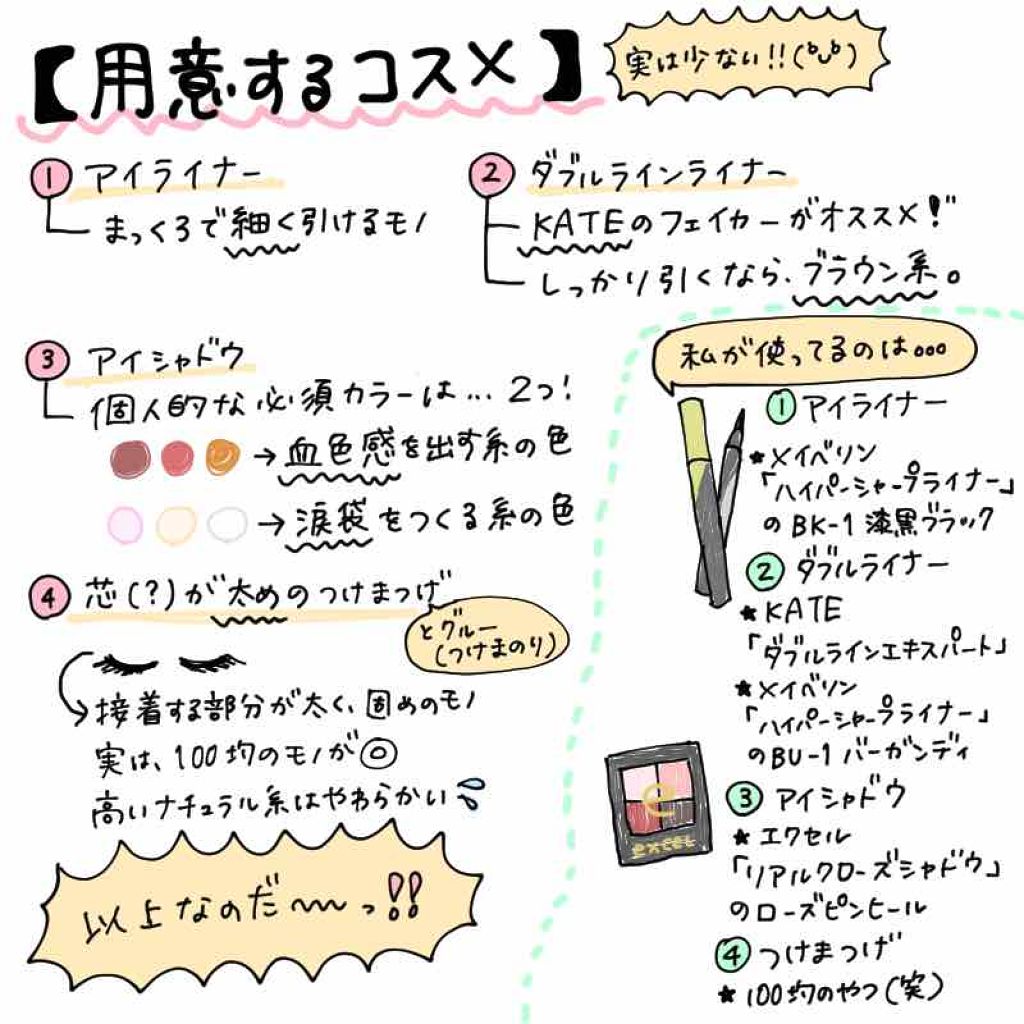 【用意するコスメ】
実は少ない!!(ᵒ̴̶̷ᴗᵒ̴̶̷)
① アイライナー
まっくろで細く引けるモノ
② ダブルラインライナー
KATEのフェイカーがオススメ!!
しっかり引くなら、ブラウン系。
③ アイシャドウ
個人的な必須カラーは…2つ!
→血色感を出す系の色
→涙袋をつくる系の色
④ 芯(?)が太めのつけまつげ
とグルー
(つけまのり)
接着する部分が太く、固めのモノ
実は、100均のモノが◎
高いナチュラル系はやわらかい
以上なのだ〜〜っ!!
私が使ってるのは…
① アイライナー
★メイベリン
「ハイパーシャープライナー」
のBK-1 漆黒ブラック
② ダブルライナー
★KATE
「ダブルラインエキスパート」
★メイベリン
「ハイパーシャープライナー」
のBU-1 バーガンディ
③ アイシャドウ
★エクセル
「リアルクローズシャドウ」
のローズピンヒール
e
excel
④ つけまつげ
★100均のやつ(笑)